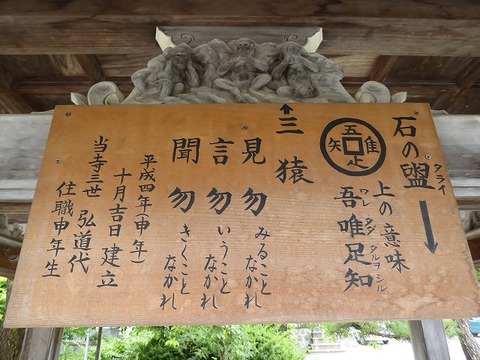 石の盥
タライ
上の意味
吾唯足知
ワレ タダ タルヲ シル
五 隹 疋 矢
三猿
見勿 みること なかれ
言勿 いうこと なかれ
聞勿 きくこと なかれ
平成四年(申年)
十月吉日建立
当寺三世 弘道代
住職申年生